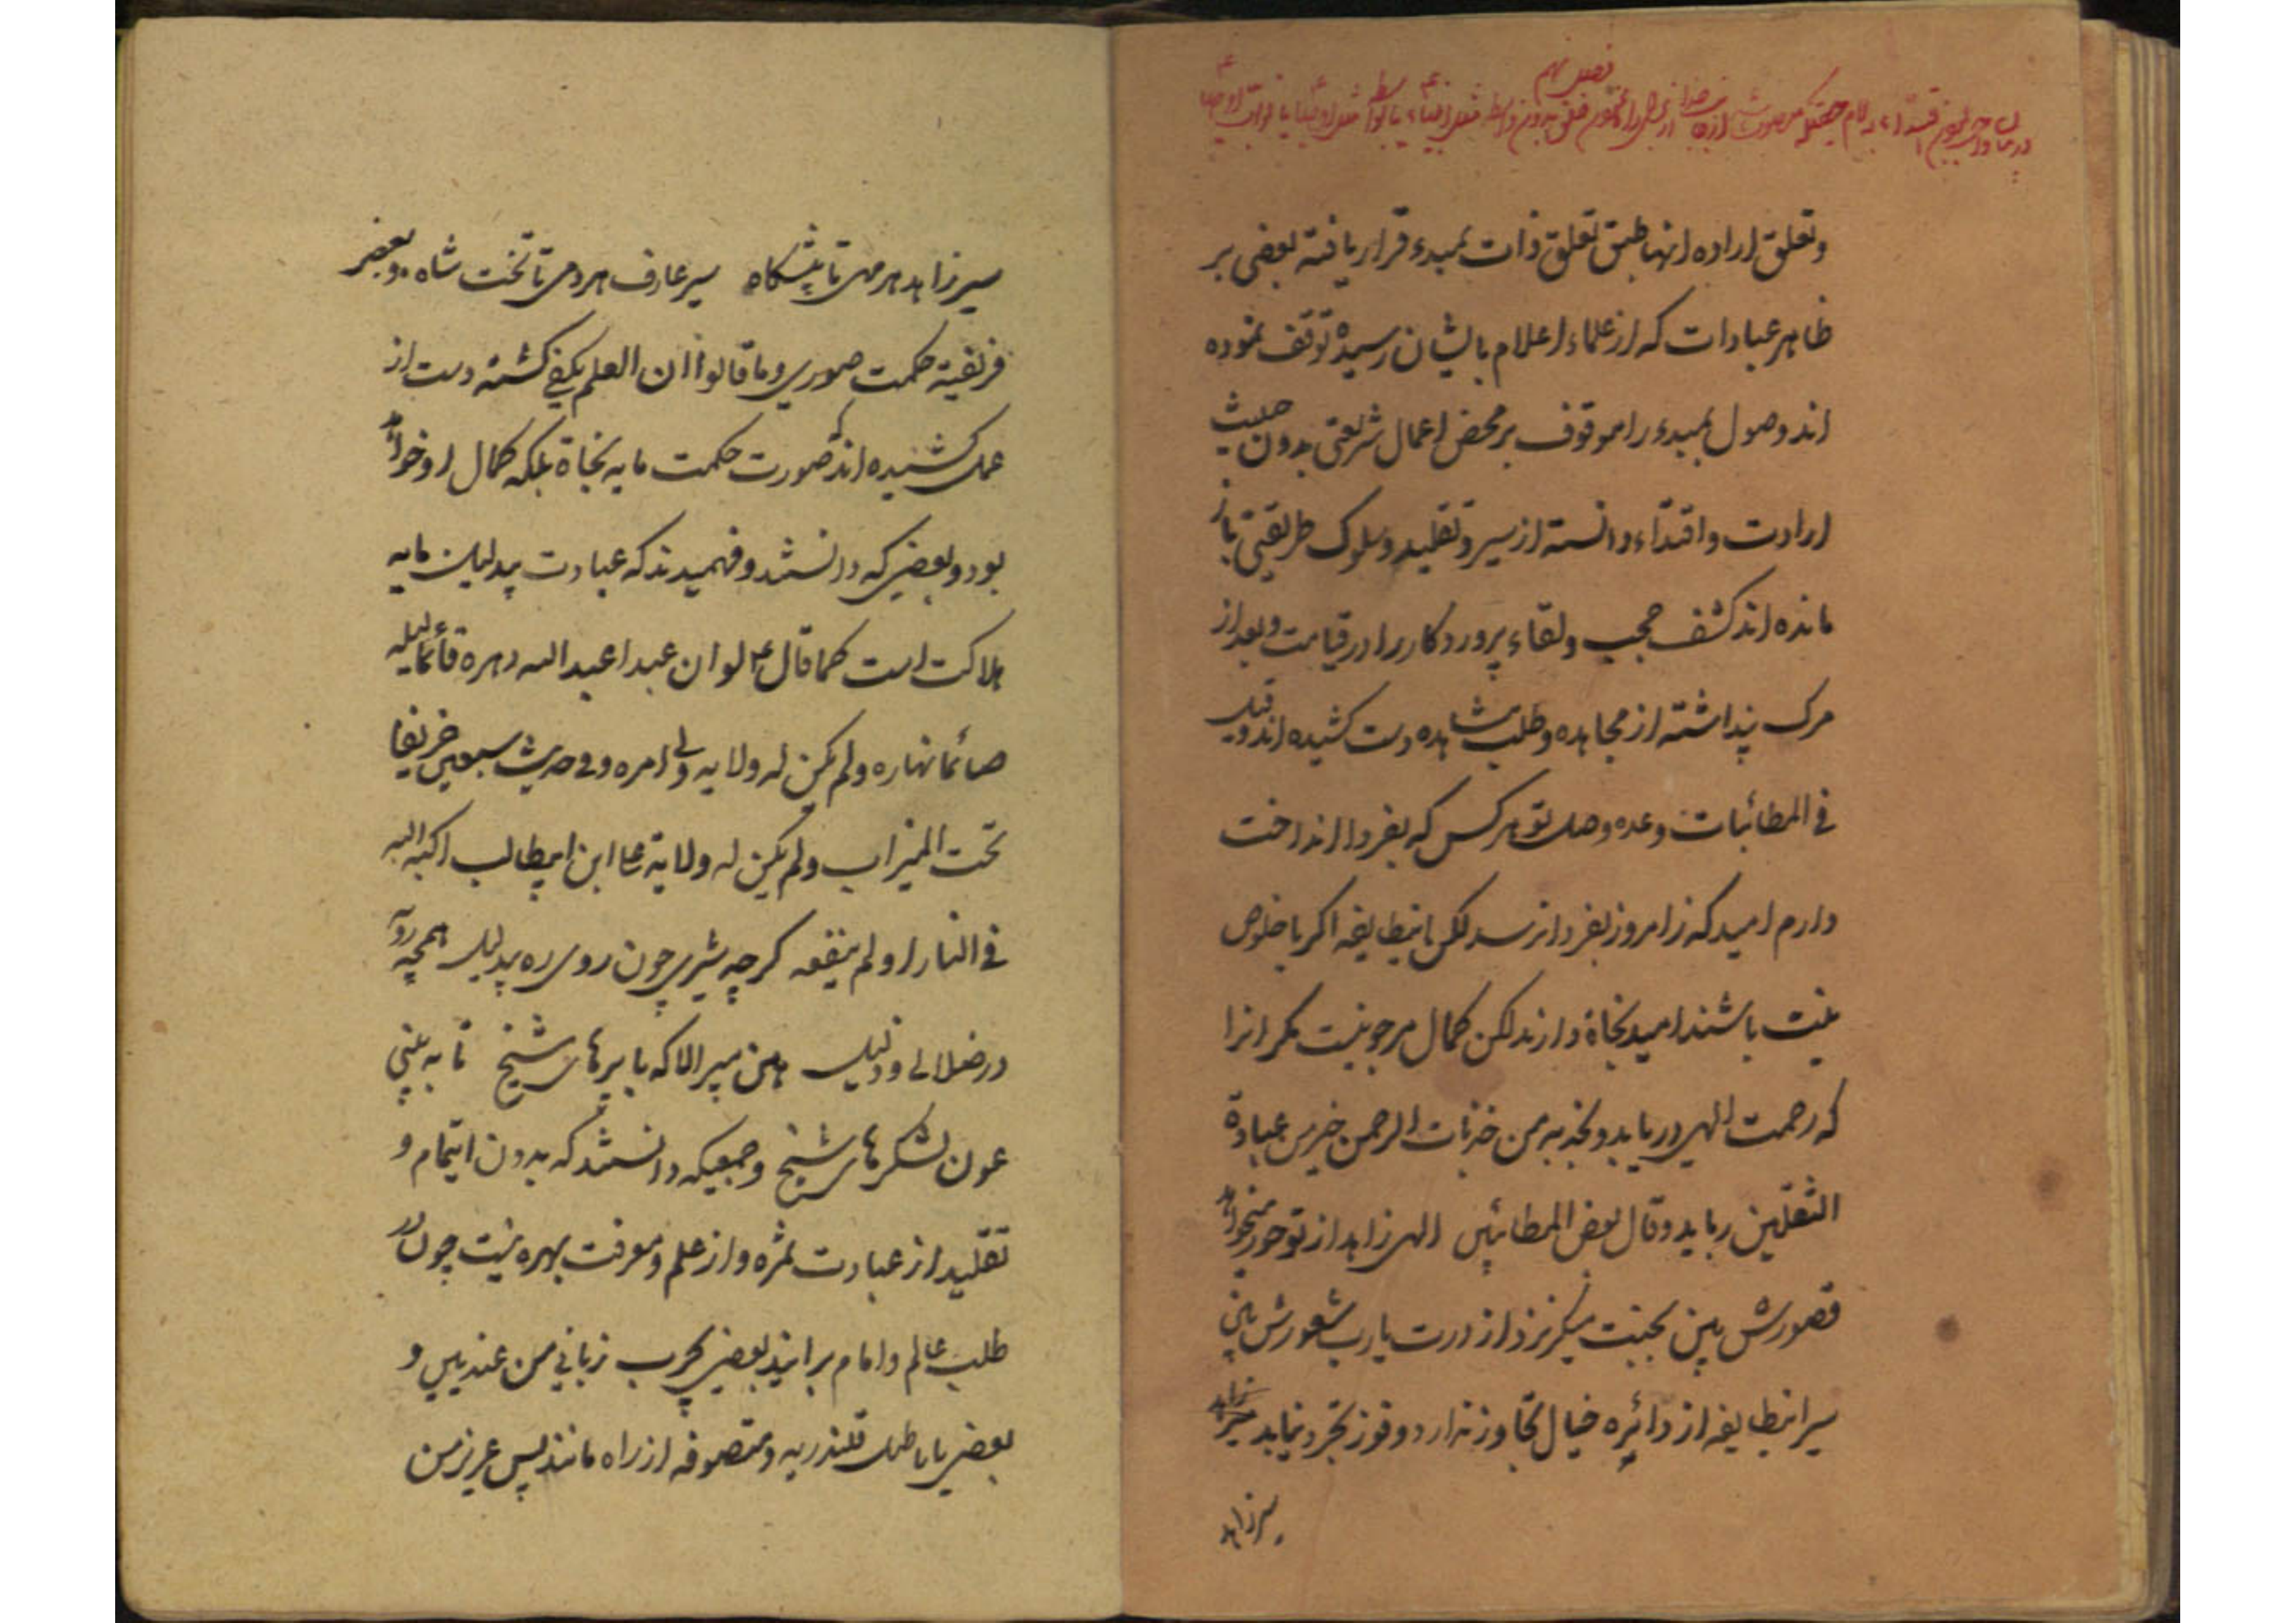 فصل نهم
در بیان واجب بودن اقتداء به امام
وتعلق اراده انها طبق تعلق ذات بمبدء قرار یافته بعضی بر
ظاهر عبادات که از علماء اعلام بایشان رسیده توقف نموده
اند وصول بمبدء را موقوف بر محض اعمال شریعتی بدون حیثیت
ارادت واقتداء دانسته از سیر و تقلید و سلوک طریقتی باز
مانده اند کشف حجب ولقاء پروردکار را در قیامت وبعد از
مرک پنداشته از مجاهده وطلب مشاهده دست کشیده اند وقیل
فی المطائبات وعده وصل تو هر کس که بفردا انداخت
دارم امید که ز امروز بفردا نرسد لکن اینطایفه اکر با خلوص
نیت باشند امید نجاة دارند لکن کمال مرجو نیست مکر انرا
که رحمت الهی دریابد وبجذبه من جذبات الرحمن خیر من عبادة
الثقلین رباید وقال بعض المطائبین الهی زاهد از تو حور میخواهد
قصورش بین بجنت میکریزد از درت یارب شعورش بین
سیر اینطایفه از دائره خیال تجاوز ندارد وفوز تجرد نیابد
سیر زاهد
سیر زاهد هر مهی تا پیشکاه سیر عارف هر دمی تا تخت شاه وبعضی
فریفتة حکمت صوری وما قالوا ان العلم یکفی کشته دست از
عمل کشیده اند که صورت حکمت مایه نجاة بلکه کمال او خواهد
بود وبعضی که دانستند وفهمیدند که عبادت بیدلیل مایه
هلاکت است کما قال ع لو ان عبدا عبد الله دهره قائما لیله
صائما نهاره ولم یکن له ولایه ولی امره وفی حدیث سبعین خریفا
تحت المیزاب ولم یکن له ولایة علی ابن ابیطالب اکبه الله
فی النار او لم ینفعه کرچه شیری چون روی ره بیدلیل همچه روبه
در ضلالی و ذلیل هین مپر الا که با پرهای شیخ تا به بینی
عون لشکرهای شیخ وجمعیکه دانستند که بدون ایتمام و
تقلید از عبادت ثمره واز علم ومعرفت بهره نیست چون در
طلب عالم وامام برایند بعضی بچرب زبانی من عندیین و
بعضی باباطیل قلندریه ومتصوفه از راه مانند پس عزیز من